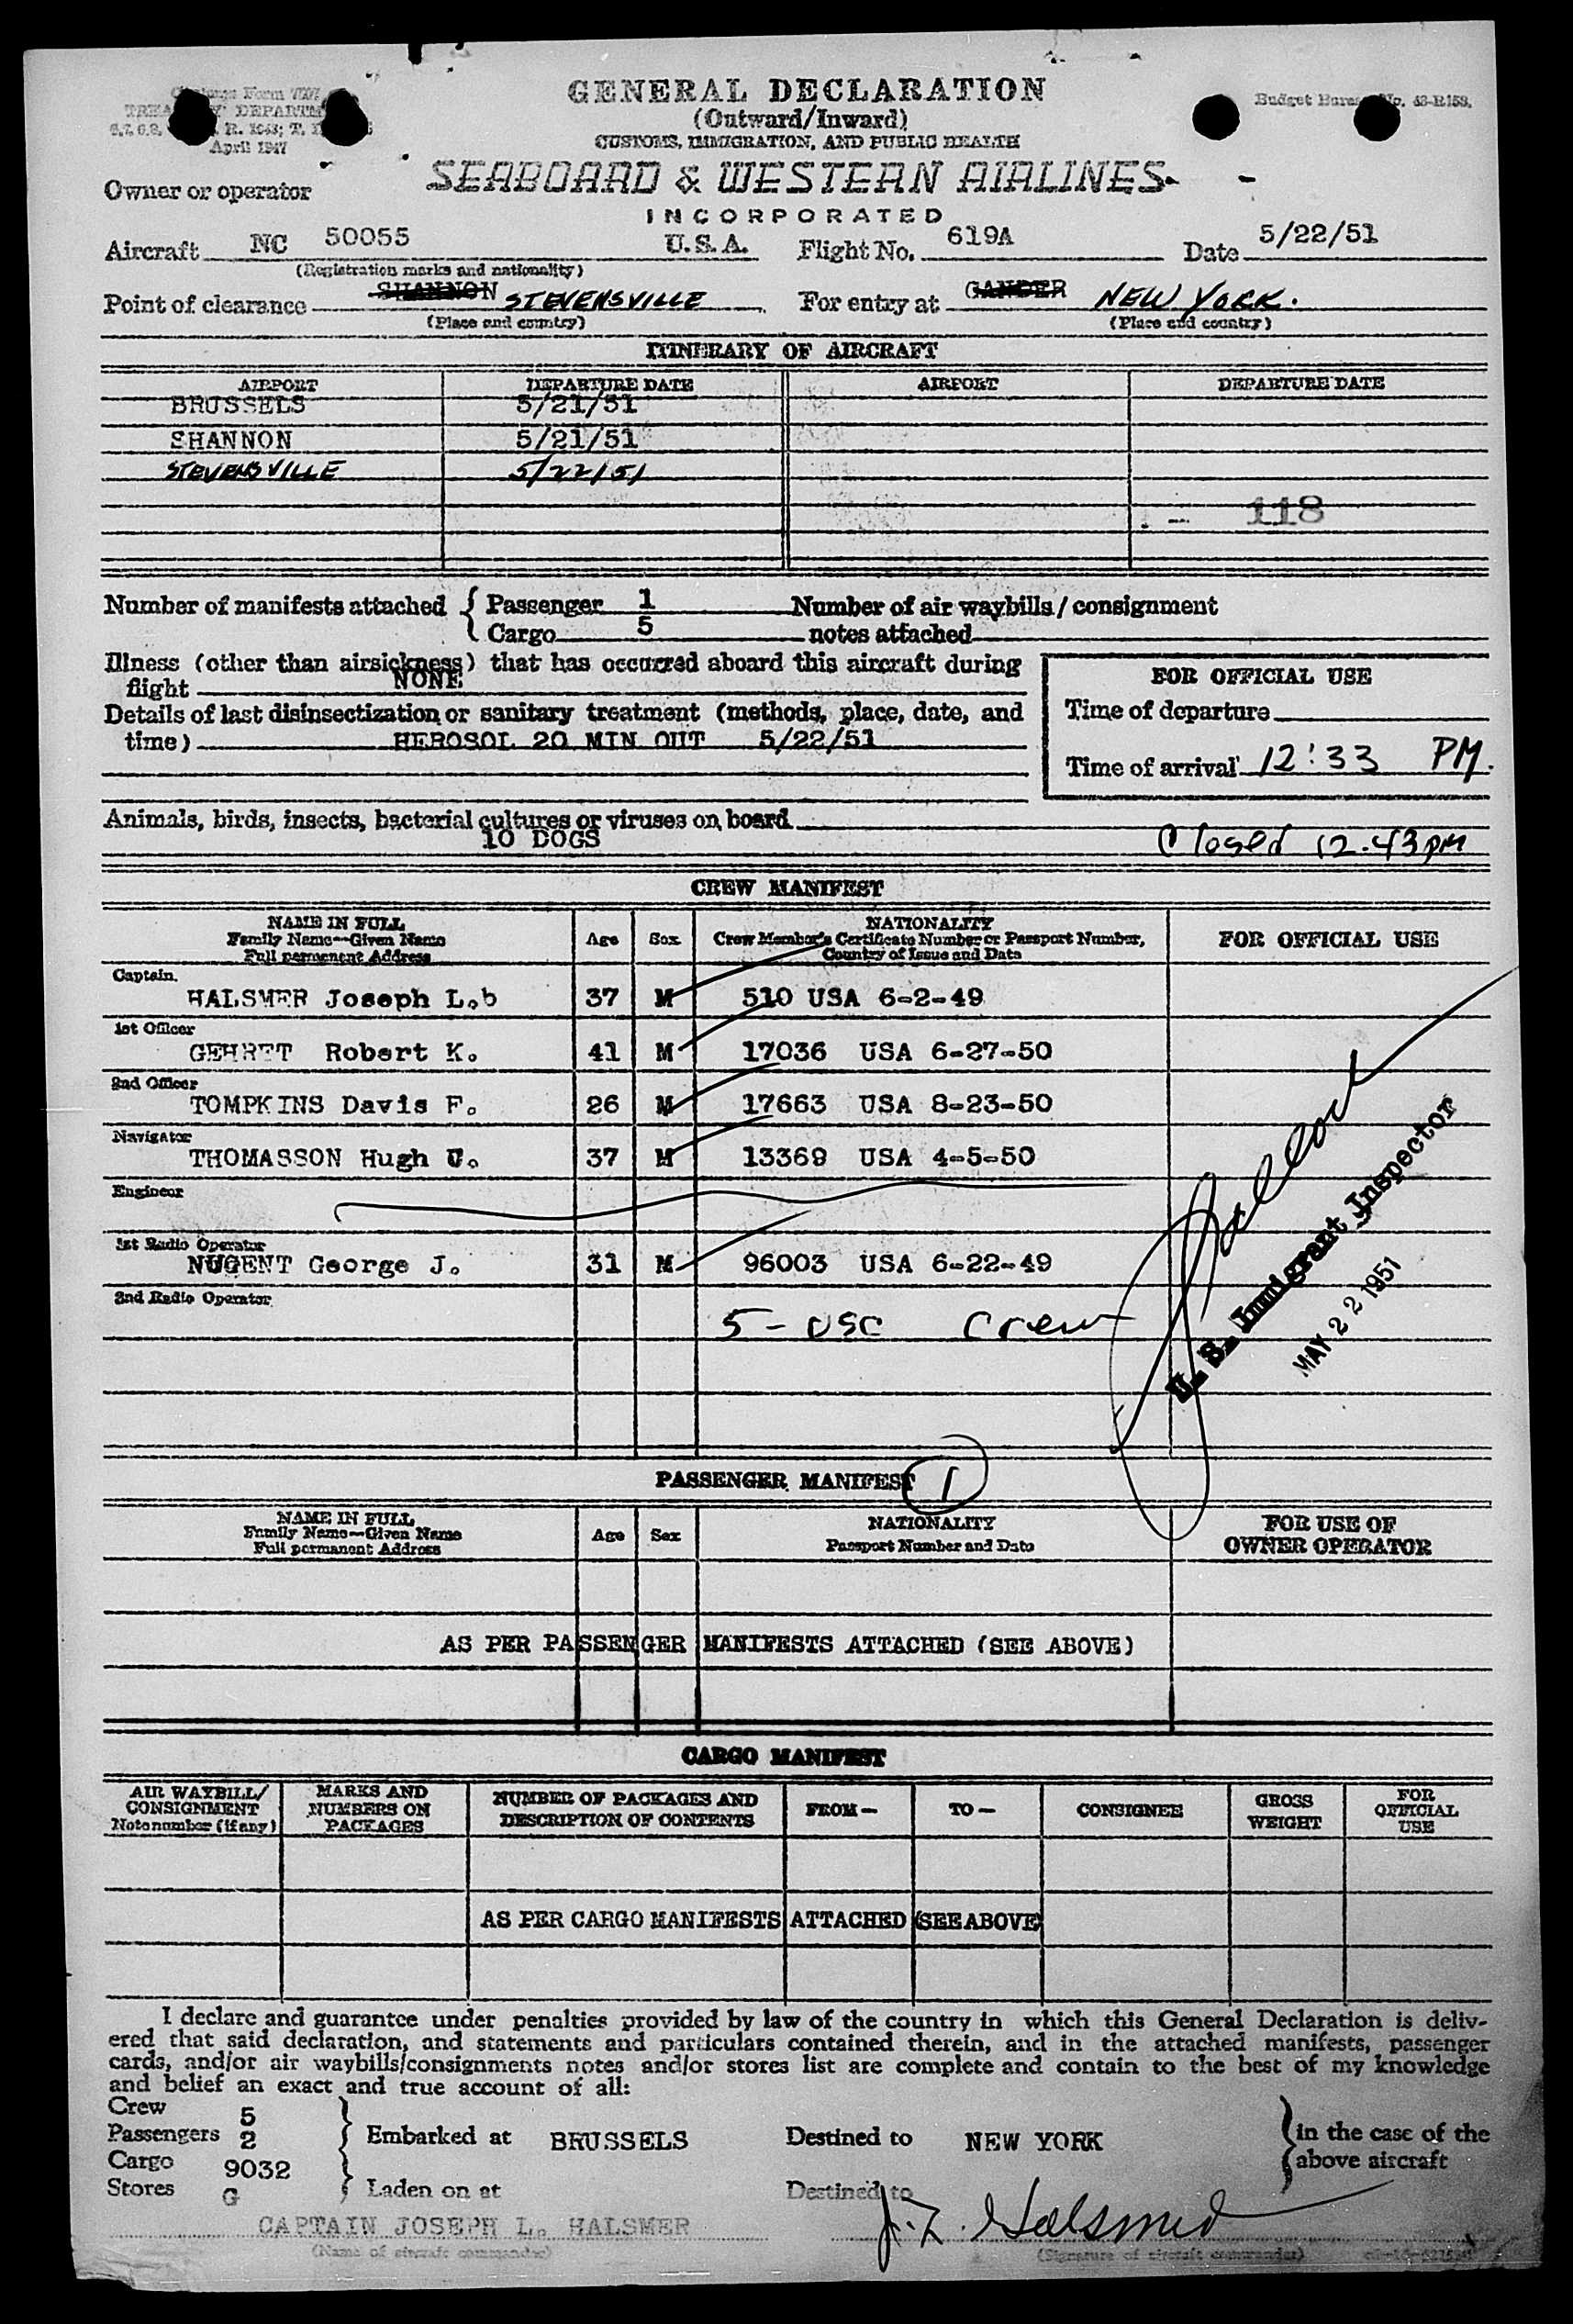 GENERAL DECLARATION
(Outward/Inward)
CUSTOMS, IMMIGRATION, AND PUBLIC HEALTH
Customs Form
TREASURY DEPARTMENT
April 1947
Budget Bureau No. 43-R153.
SEABOARD & WESTERN AIRLINES
INCORPORATED
Owner or operator
Aircraft NC 50055 U.S.A. Flight No. 619A Date 5/22/51
(Registration marks and nationality)
Point of clearance SHANNON STEVENSVILLE For entry at GANDER NEW YORK.
(Place and country) (Place and country)
ITINERARY OF AIRCRAFT
AIRPORT DEPARTURE DATE AIRPORT DEPARTURE DATE
BRUSSELS 5/21/51
SHANNON 5/21/51
STEVENSVILLE 5/22/51
118
Number of manifests attached { Passenger 1 Number of air waybills/consignment
Cargo 5 notes attached
Illness (other than airsickness) that has occurred aboard this aircraft during
flight NONE
Details of last disinsectization or sanitary treatment (methods, place, date, and
time) HEROSOL 20 MIN OUT 5/22/51
FOR OFFICIAL USE
Time of departure
Time of arrival 12:33 PM.
Animals, birds, insects, bacterial cultures or viruses on board
10 DOGS
Closed 12.43 PM
CREW MANIFEST
NAME IN FULL
Family Name—Given Name
Full permanent Address
Age Sex
NATIONALITY
Crew Member's Certificate Number or Passport Number,
Country of Issue and Date
FOR OFFICIAL USE
Captain.
HALSMER Joseph L.b 37 M 510 USA 6-2-49
1st Officer
GEHRET Robert K. 41 M 17036 USA 6-27-50
2nd Officer
TOMPKINS Davis F. 26 M 17663 USA 8-23-50
Navigator
THOMASSON Hugh U. 37 M 13369 USA 4-5-50
Engineer
1st Radio Operator
NUGENT George J. 31 M 96003 USA 6-22-49
2nd Radio Operator
5 - USC Crew
U. S. Immigrant Inspector
MAY 22 1951
PASSENGER MANIFEST 1
NAME IN FULL
Family Name—Given Name
Full permanent Address
Age Sex
NATIONALITY
Passport Number and Date
FOR USE OF
OWNER OPERATOR
AS PER PASSENGER MANIFESTS ATTACHED (SEE ABOVE)
CARGO MANIFEST
AIR WAYBILL/
CONSIGNMENT
Note number (if any)
MARKS AND
NUMBERS ON
PACKAGES
NUMBER OF PACKAGES AND
DESCRIPTION OF CONTENTS
FROM —
TO —
CONSIGNEE
GROSS
WEIGHT
FOR
OFFICIAL
USE
AS PER CARGO MANIFESTS ATTACHED (SEE ABOVE)
I declare and guarantee under penalties provided by law of the country in which this General Declaration is deliv-
ered that said declaration, and statements and particulars contained therein, and in the attached manifests, passenger
cards, and/or air waybills/consignments notes and/or stores list are complete and contain to the best of my knowledge
and belief an exact and true account of all:
Crew 5
Passengers 2 Embarked at BRUSSELS Destined to NEW YORK in the case of the
Cargo 9032 above aircraft
Stores G Laden on at Destined to
CAPTAIN JOSEPH L. HALSMER J. L. Halsmer
(Name of aircraft commander) (Signature of aircraft commander)